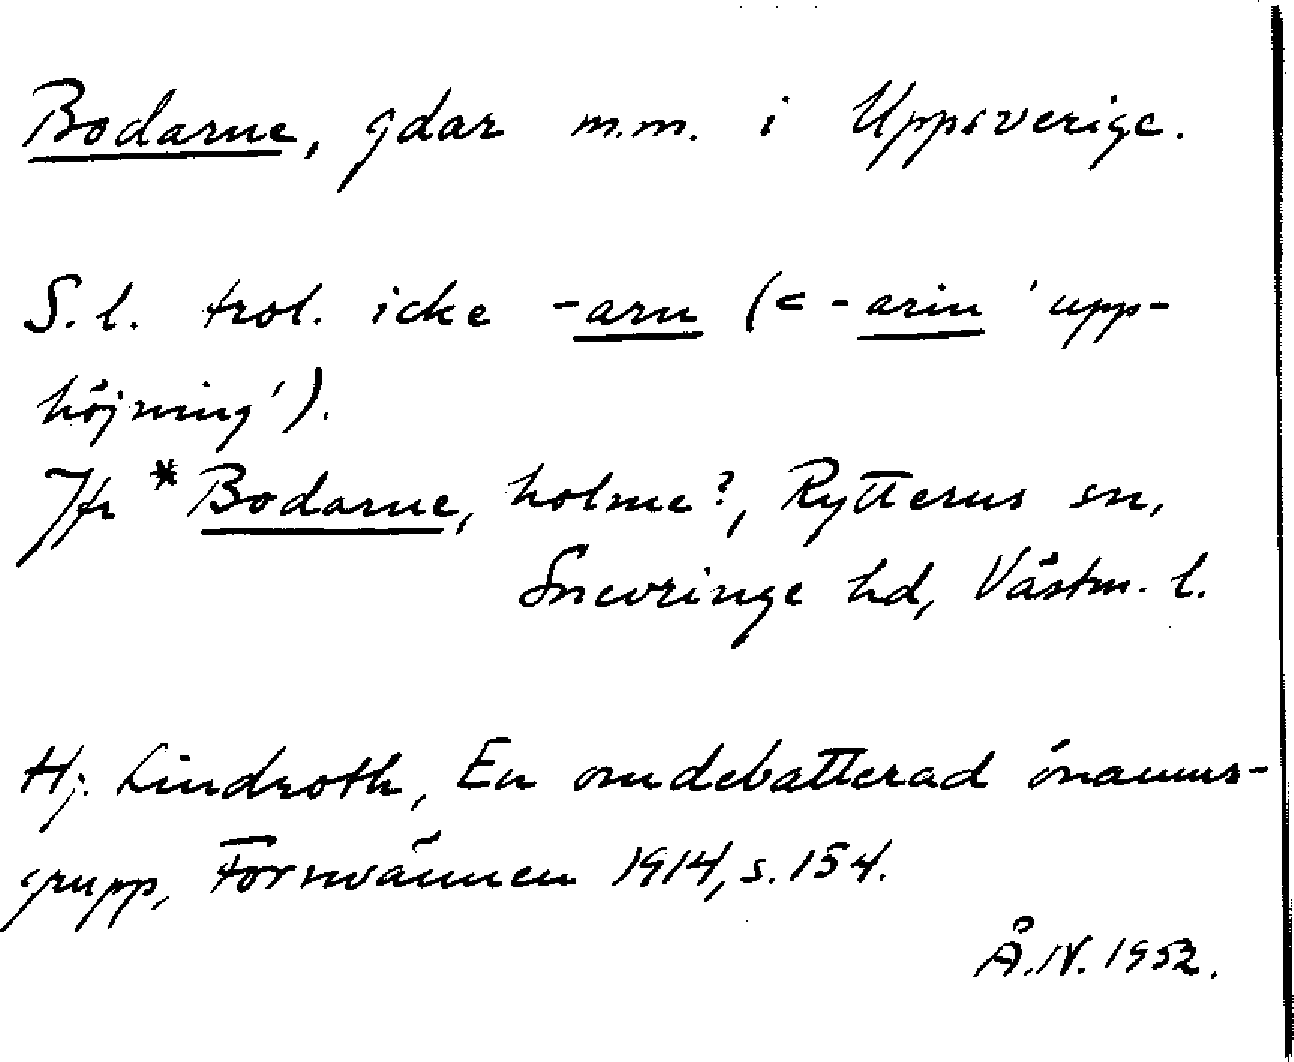 Bodarne, gdar m.m. i Uppsverige.
S.l. trol. icke -arn (< -arin 'upp-
höjning').
Jfr *Bodarne, holme?, Rytterns sn,
Snevringe hd, Västm. l.
Hj. Lindroth, En omdebatterad önamns-
grupp, Fornvännen 1914, s. 154.
Å.N. 1952.